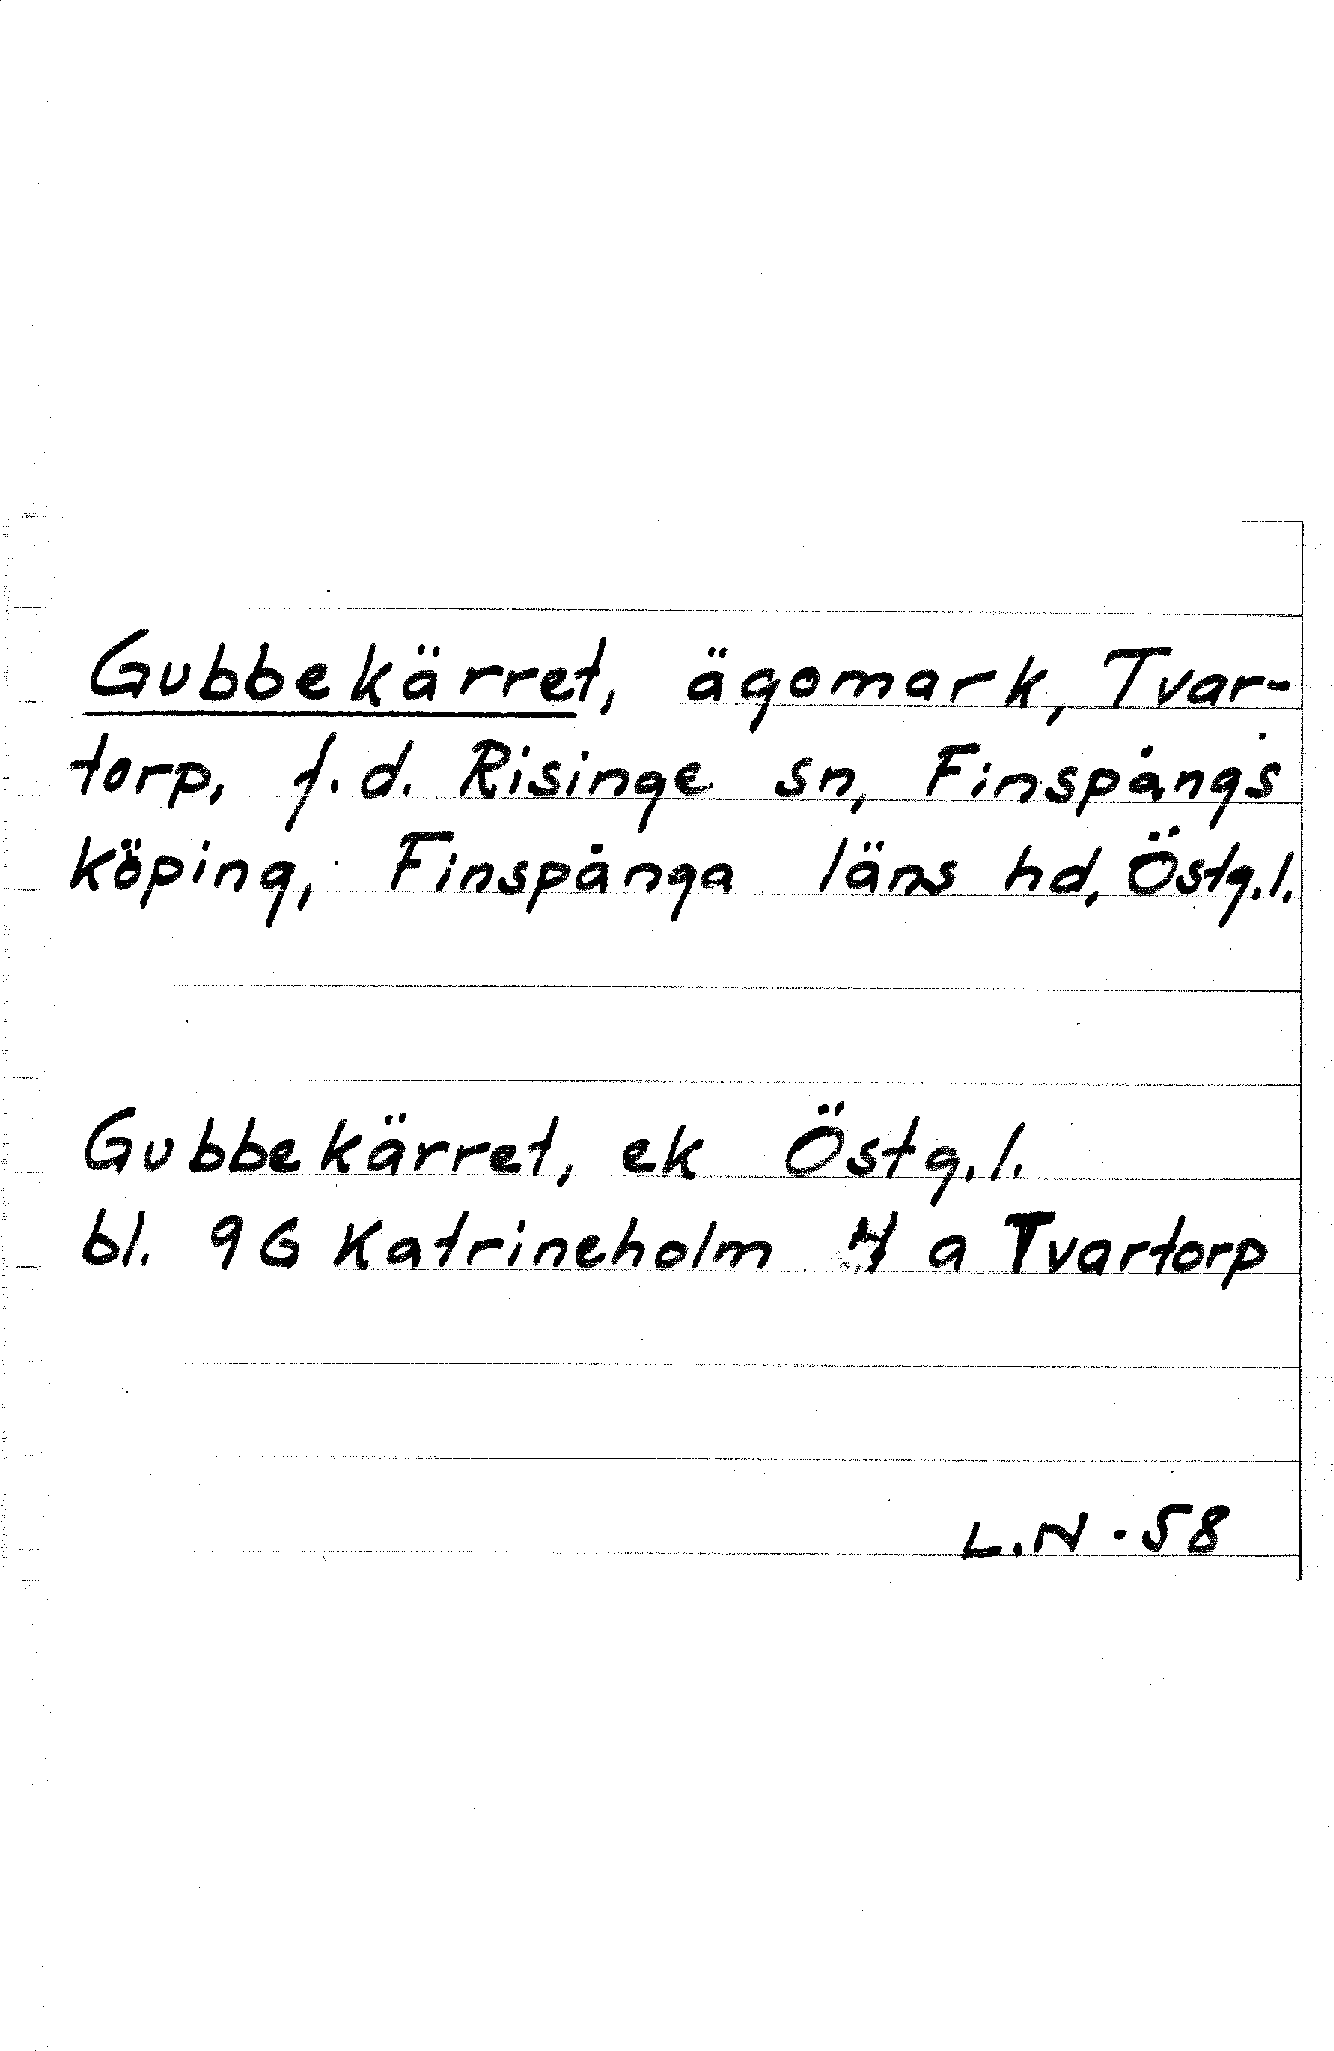 Gubbekärret, ägomark, Tvar-
torp, f.d. Risinge sn, Finspångs
köping, Finspånga läns hd, Östg.l.
Gubbekärret, ek Östg.l.
bl. 9G Katrineholm N a Tvartorp
L.N. 58